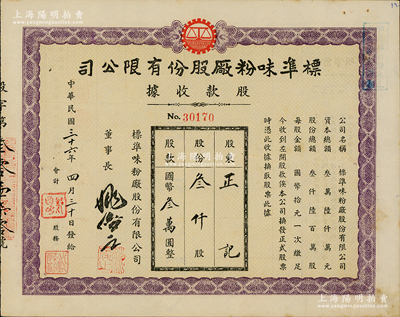 上海陽明拍賣
標準味粉廠股份有限公司
股款收據
No. 30170
公司名稱 標準味粉廠股份有限公司
資本總額 叁仟陸百萬元
股份總額 叁仟陸百萬股
每股金額 國幣拾元一次繳足
今收到左開股款俟本公司換發正式股票
時憑此收據換取股票此據
股東 正記
股份 叁仟股
股款 國幣叁萬圓整
標準味粉廠股份有限公司
董事長
中華民國三十六年四月三十日發給
會計
股務